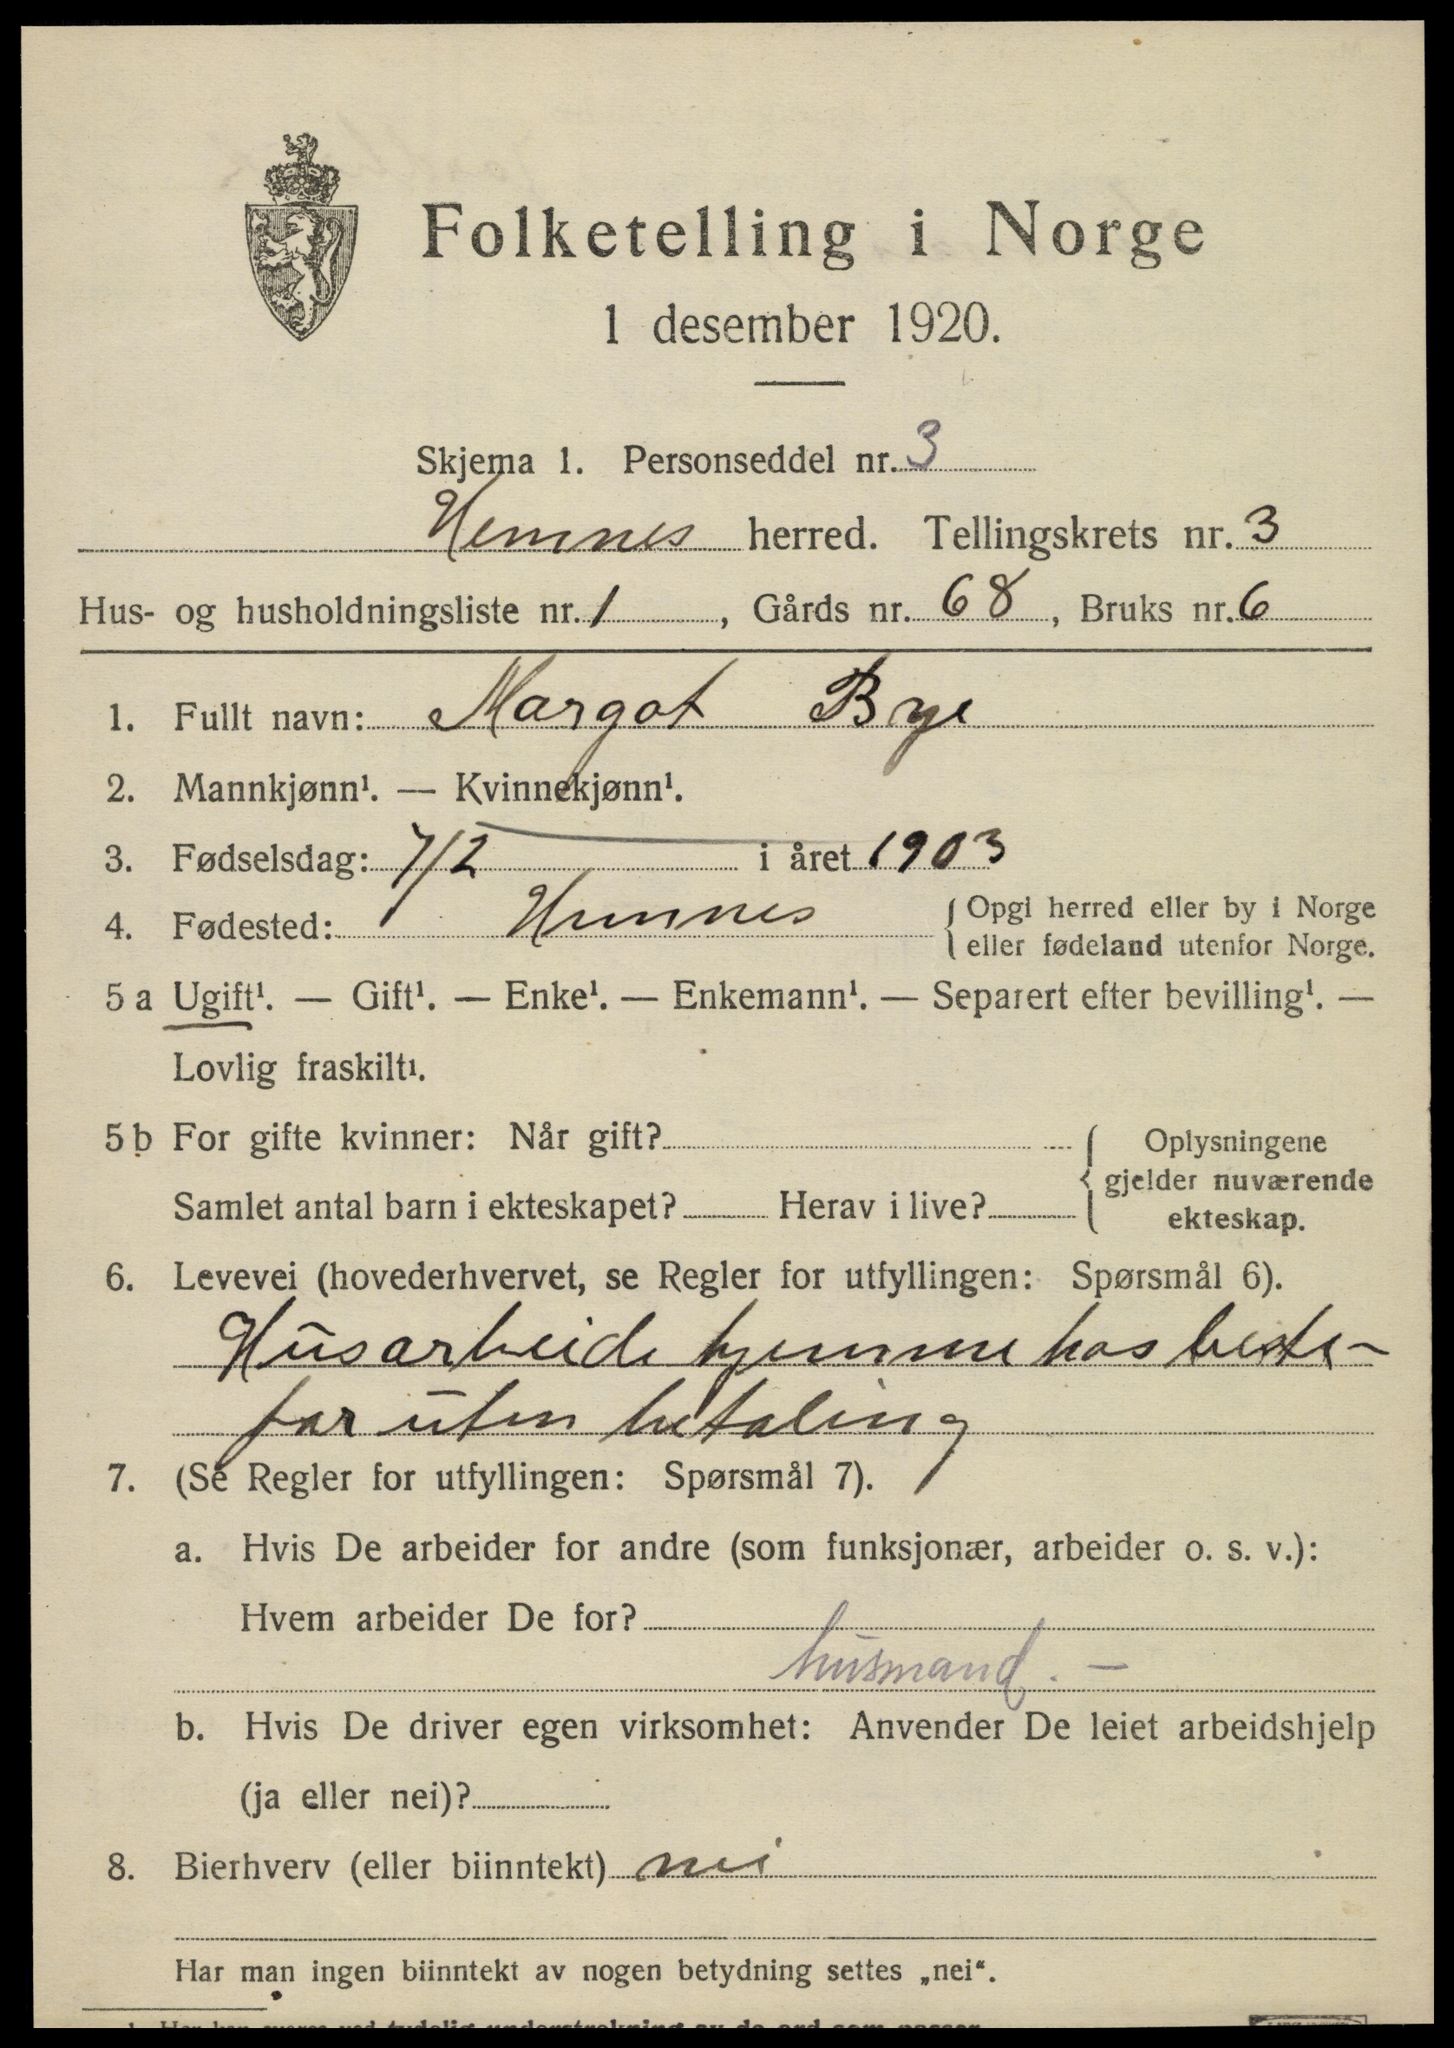 Folketelling i Norge
1 desember 1920.
Skjema 1. Personseddel nr. 3
Hemnes herred. Tellingskrets nr. 3
Hus- og husholdningsliste nr. 1, Gårds nr. 68, Bruks nr. 6
1. Fullt navn: Margot Bye
2. Mannkjønn¹. — Kvinnekjønn¹.
3. Fødselsdag: 7/2 i året 1903
4. Fødested: Hemnes { Opgi herred eller by i Norge
eller fødeland utenfor Norge.
5 a Ugift¹. — Gift¹. — Enke¹. — Enkemann¹. — Separert efter bevilling¹. —
Lovlig fraskilt¹.
5 b For gifte kvinner: Når gift?
Samlet antal barn i ekteskapet? Herav i live?
{ Oplysningene
gjelder nuværende
ekteskap.
6. Levevei (hovederhvervet, se Regler for utfyllingen: Spørsmål 6).
Husarbeide hjemme hos beste-
far uten betaling
7. (Se Regler for utfyllingen: Spørsmål 7).
a. Hvis De arbeider for andre (som funksjonær, arbeider o. s. v.):
Hvem arbeider De for?
husmand. —
b. Hvis De driver egen virksomhet: Anvender De leiet arbeidshjelp
(ja eller nei)?
8. Bierhverv (eller biinntekt) nei
Har man ingen biinntekt av nogen betydning settes „nei“.